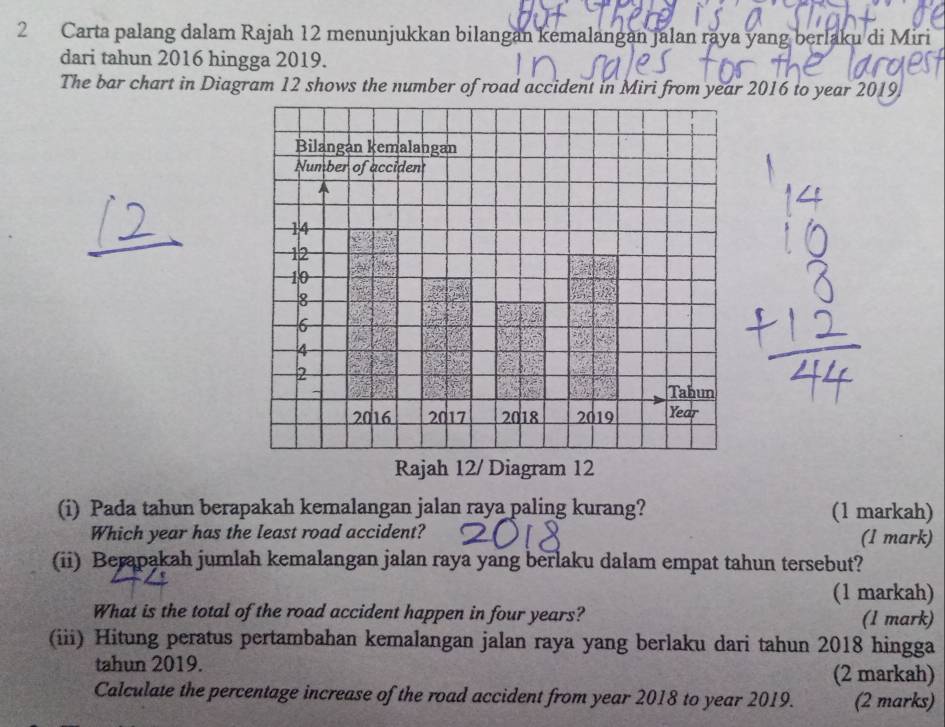 but there is a slight de
2 Carta palang dalam Rajah 12 menunjukkan bilangan kemalangan jalan raya yang berlaku di Miri
dari tahun 2016 hingga 2019.
in sales for the largest
The bar chart in Diagram 12 shows the number of road accident in Miri from year 2016 to year 2019.
Bilangan kemalangan
Number of accident
14
12
10
8
6
4
2
Tahun
Year
2016 2017 2018 2019
Rajah 12/ Diagram 12
12
1
14
10
8
+12
44
(i) Pada tahun berapakah kemalangan jalan raya paling kurang? (1 markah)
Which year has the least road accident? 2018 (1 mark)
(ii) Berapakah jumlah kemalangan jalan raya yang berlaku dalam empat tahun tersebut?
44 (1 markah)
What is the total of the road accident happen in four years? (1 mark)
(iii) Hitung peratus pertambahan kemalangan jalan raya yang berlaku dari tahun 2018 hingga
tahun 2019. (2 markah)
Calculate the percentage increase of the road accident from year 2018 to year 2019. (2 marks)